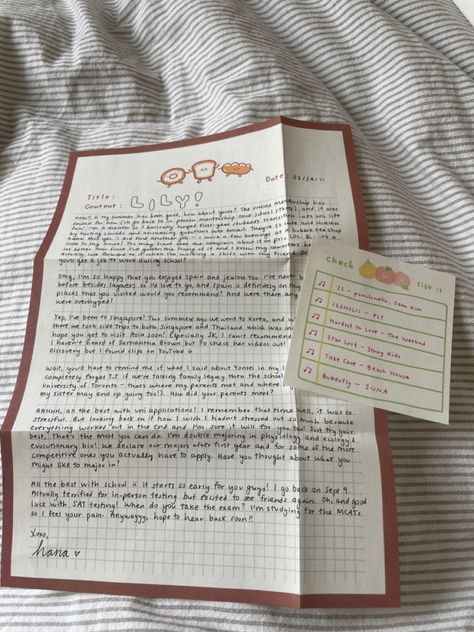 Date: 08/24/21
Title:
Content: LILY!
Hello! My summer has been good, how about yours? The online mentorship has
ended for now
fun! I'm a mentor so I basically helped first-year students transition into uni life
by hosting events and answering questions over email.
OMG, I'm so happy that you enjoyed Spain and Jeaton too. I've never b
before besides layovers so I'd love to go, and Spain is definitely on my
places that you visited would you recommend? And were there any
were overhyped?
Yep, I've been to Singapore! Two summers ago we went to Korea, and w
there we took side trips to both Singapore and Thailand which was in
hope you get to visit Asia soon! Especially SK, I can't recommend
I haven't heard of Samantha Brown but I'll check her videos out!
Discovery but I found clips on YouTube
Wait, you'll have to remind me of what I said about Yonsei in my l
completely forget T.T If we're talking family legacy then the school
University of Toronto - that's where my parents met and where
my sister may end up going too!). How did your parents meet?
AHHHH, all the best with uni applications! I remember that time well, it was so
stressful. But looking back on it now I wish I hadn't stressed out so much because
everything worked out in the end and I'm sure it will for you too! Just try your
best, that's the most you can do. I'm double majoring in physiology and ecology &
evolutionary bio! We declare our majors after first year and for some of the more
competitive ones you actually have to apply. Have you thought about what you
might like to major in?
All the best with school it starts so early for you guys! I go back on Sept 9.
Actually terrified for in-person testing but excited to see friends again. Oh, and good
luck with SAT testing! When do you take the exam? I'm studying for the MCATs
so I feel your pain. Anywayyy, hope to hear back soon!!
Xoxo,
hana
check list it
23 - punchnello, Sam Kim
IGOHOLIC - PLT
Hardest to Love - The Weeknd
Star Lost - Stray Kids
Take Care - Beach House
Butterfly - IUNA